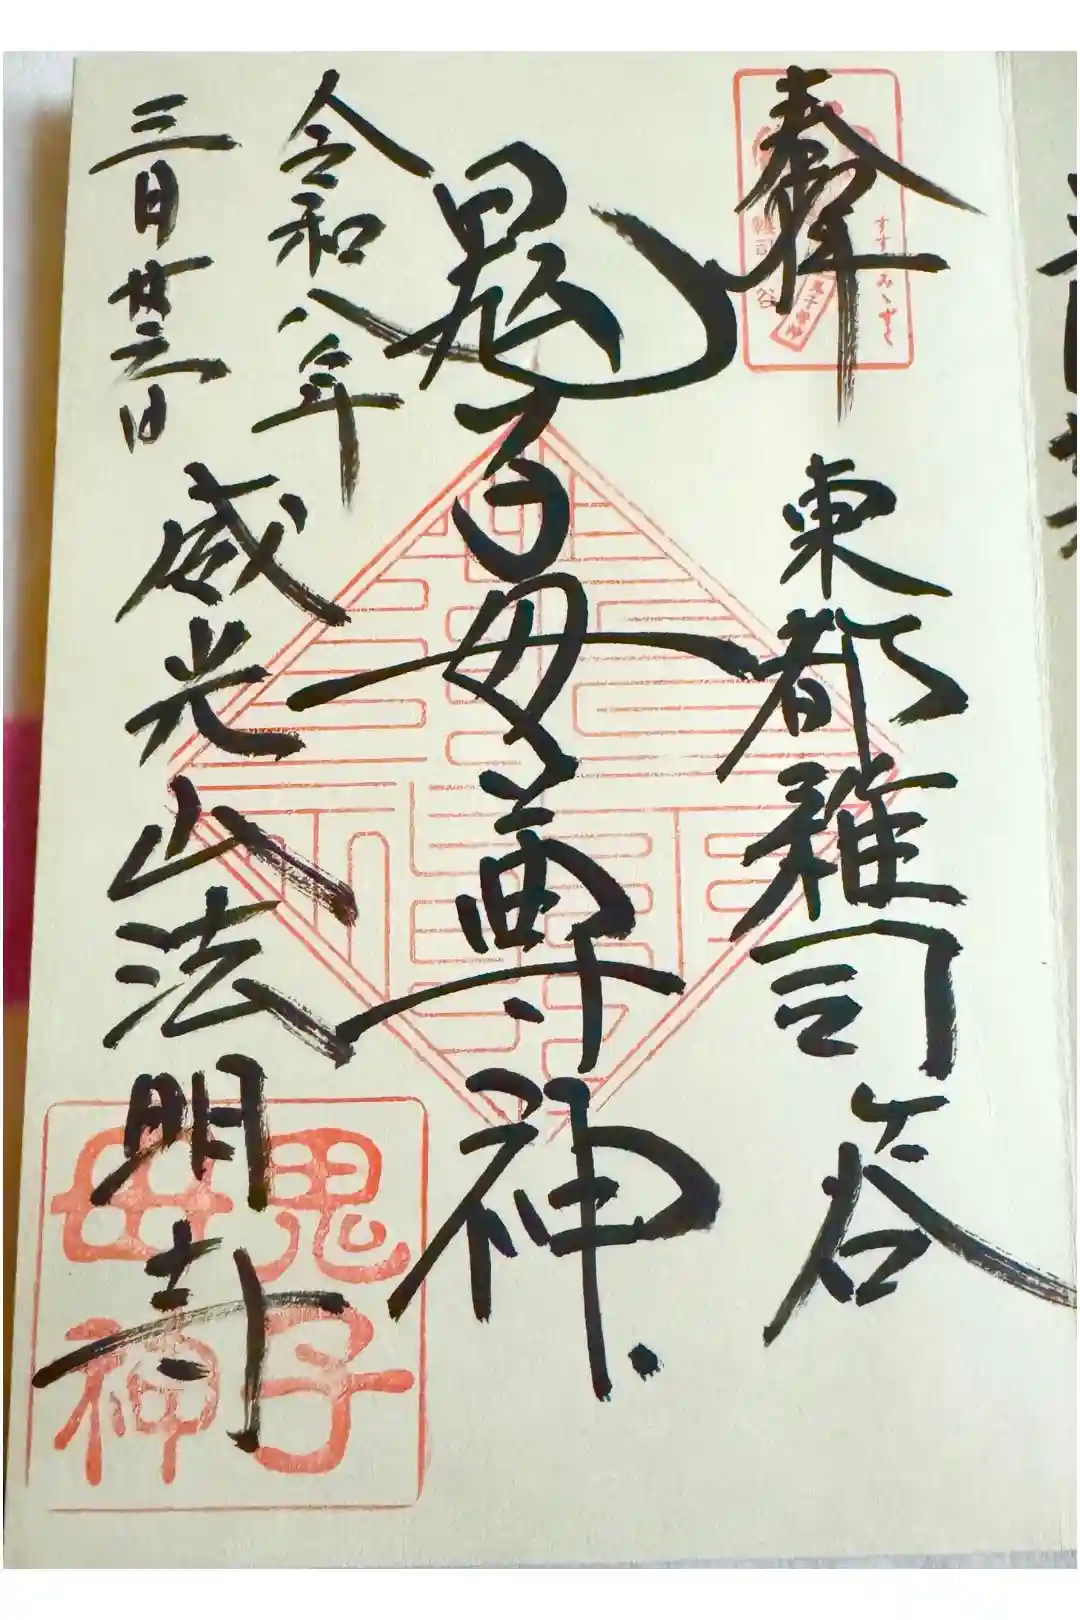 奉拝
すすきみゝずく
雑司ヶ谷
鬼子母神
東都雑司谷
鬼子母尊神
令和八年
三月廿三日
威光山法明寺
鬼子
母神